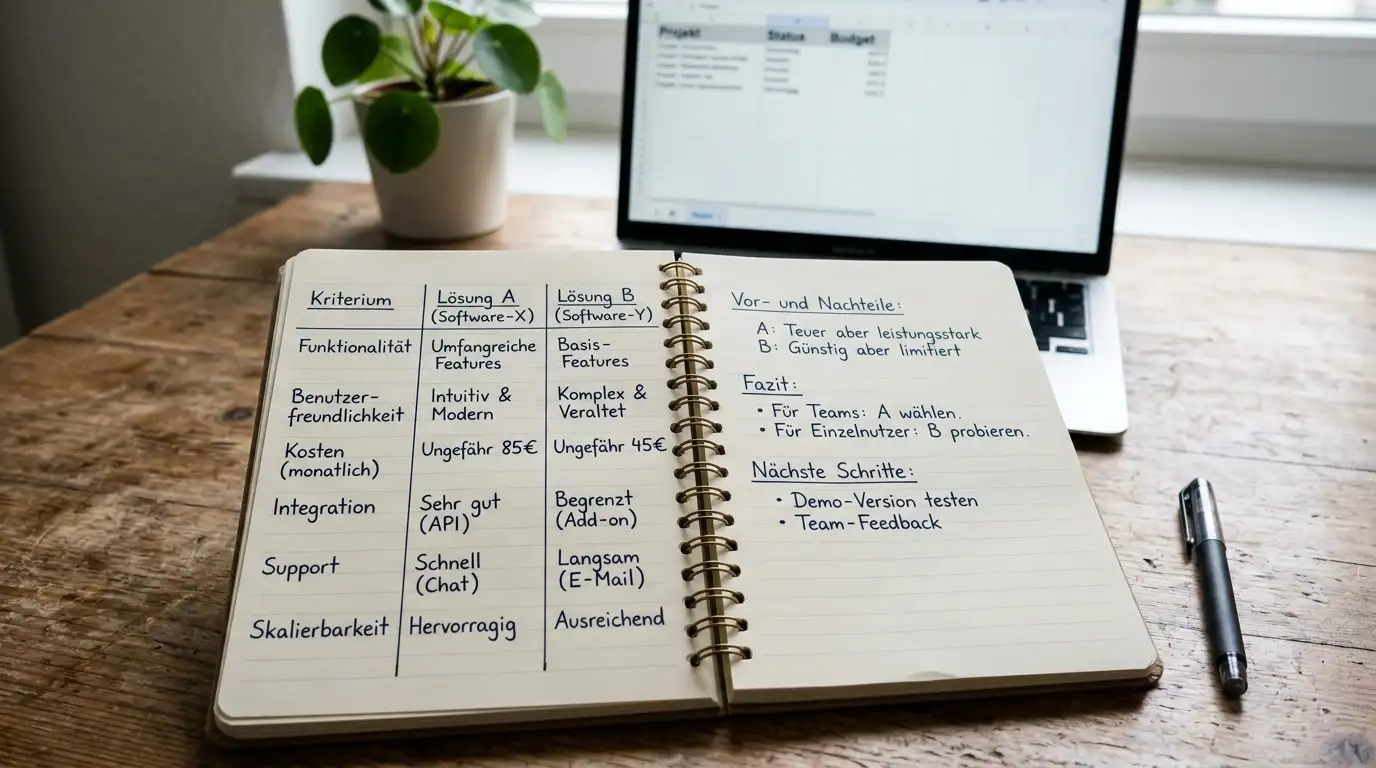 Projekt Status Budget
Kriterium Lösung A Lösung B
(Software-X) (Software-Y)
Funktionalität Umfangreiche Basis-
Features Features
Benutzer- Intuitiv & Komplex &
freundlichkeit Modern Veraltet
Kosten Ungefähr 85€ Ungefähr 45€
(monatlich)
Integration Sehr gut Begrenzt
(API) (Add-on)
Support Schnell Langsam
(Chat) (E-Mail)
Skalierbarkeit Hervorragig Ausreichend
Vor- und Nachteile:
A: Teuer aber leistungsstark
B: Günstig aber limitiert
Fazit:
• Für Teams: A wählen.
• Für Einzelnutzer: B probieren.
Nächste Schritte:
• Demo-Version testen
• Team-Feedback